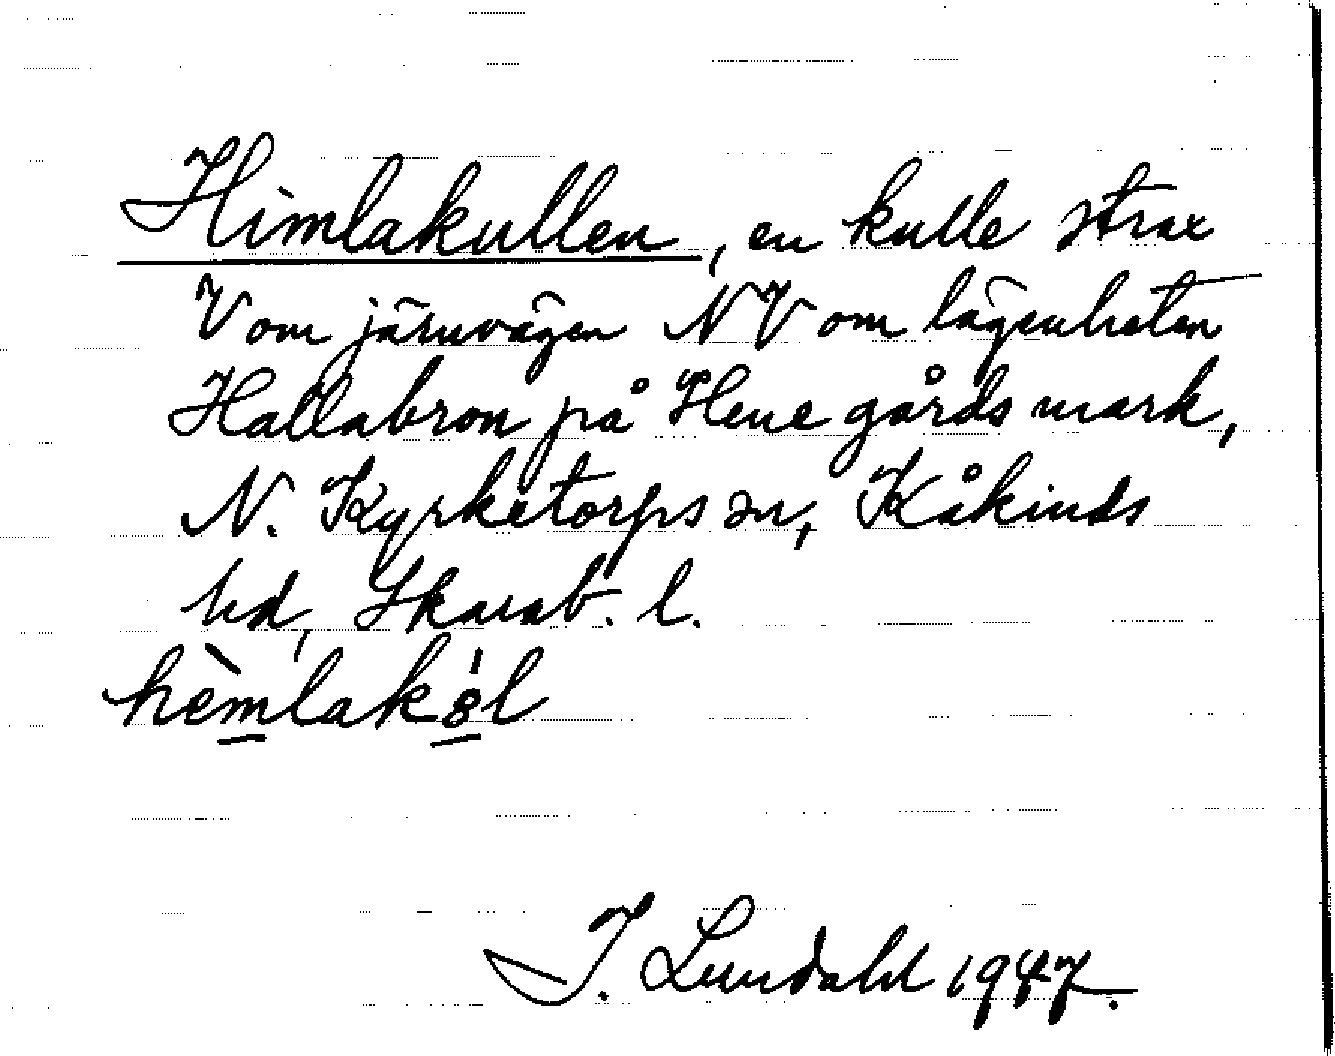 Himlakullen, en kulle strax
V om järnvägen NV om lägenheten
Hallabron på Hene gårds mark,
N. Kyrketorps sn, Kåkinds
hd, Skarab. l.
hèmlakȯl
J. Lundahl 1947.